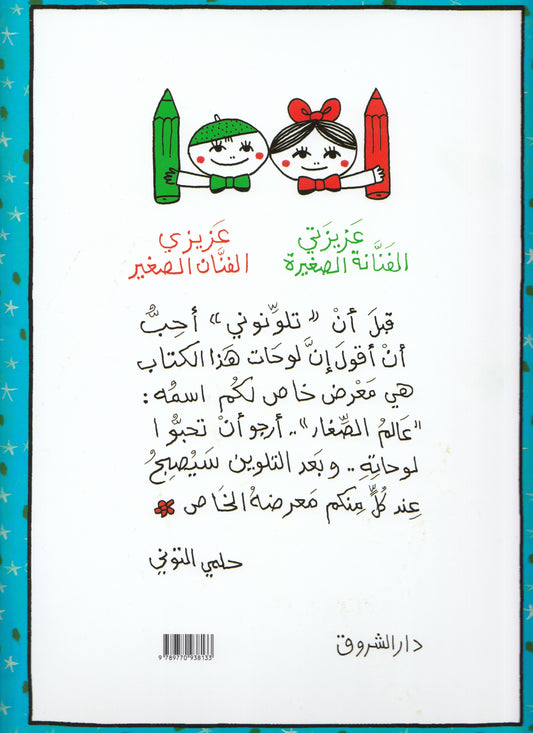 عَزِيزَتي
الفَنَّانة الصغيرة
عَزيزي
الفنَّان الصغير
قبلَ أنْ "تلوِّنوني" أحِبُّ
أنْ أقولَ إنَّ لوحات هَذا الكتاب
هي مَعْرض خاص لكُم اسمُه:
"عَالمُ الصِّغار".. أرجو أنْ تحبُّوا
لوحاتِهِ.. وبَعد التلوين سَيُصبحُ
عِند كُلٍّ مِنكم مَعرضهُ الخَاص
حلمي التوني
دار الشروق
9 789770 938133